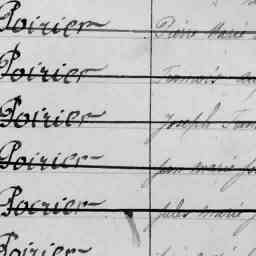 Poirier Pierre Marie
Poirier Francis
Poirier Joseph
Poirier Jean Marie
Poirier Jules Marie
Poirier